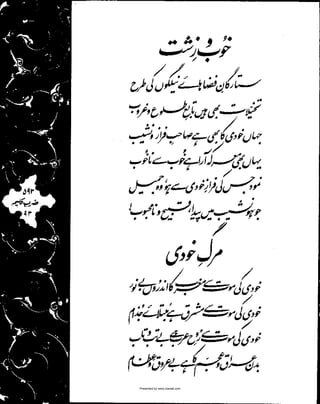 خوب و زشت
ستارگانِ فضا ہائے نیلگوں کی طرح
تخیّلات بھی ہیں تابعِ طلوع و غروب
جہاں خودی کا بھی ہے صاحبِ فراز و نشیب
یہاں بھی معرکہ آرا ہے خوب سے ناخوب
نمود جس کی فرازِ خودی سے ہو، وہ جمیل
جو ہو نشیب میں پیدا، قبیح و نامحبوب!
مرگِ خودی
خودی کی موت سے مغرب کا اندروں بے نور
خودی کی موت سے مشرق ہے مبتلائے جذام
خودی کی موت سے روحِ عرب ہے بے تب و تاب
بدن عراق و عجم کا ہے بے عروق و عظام
ضربِ کلیم